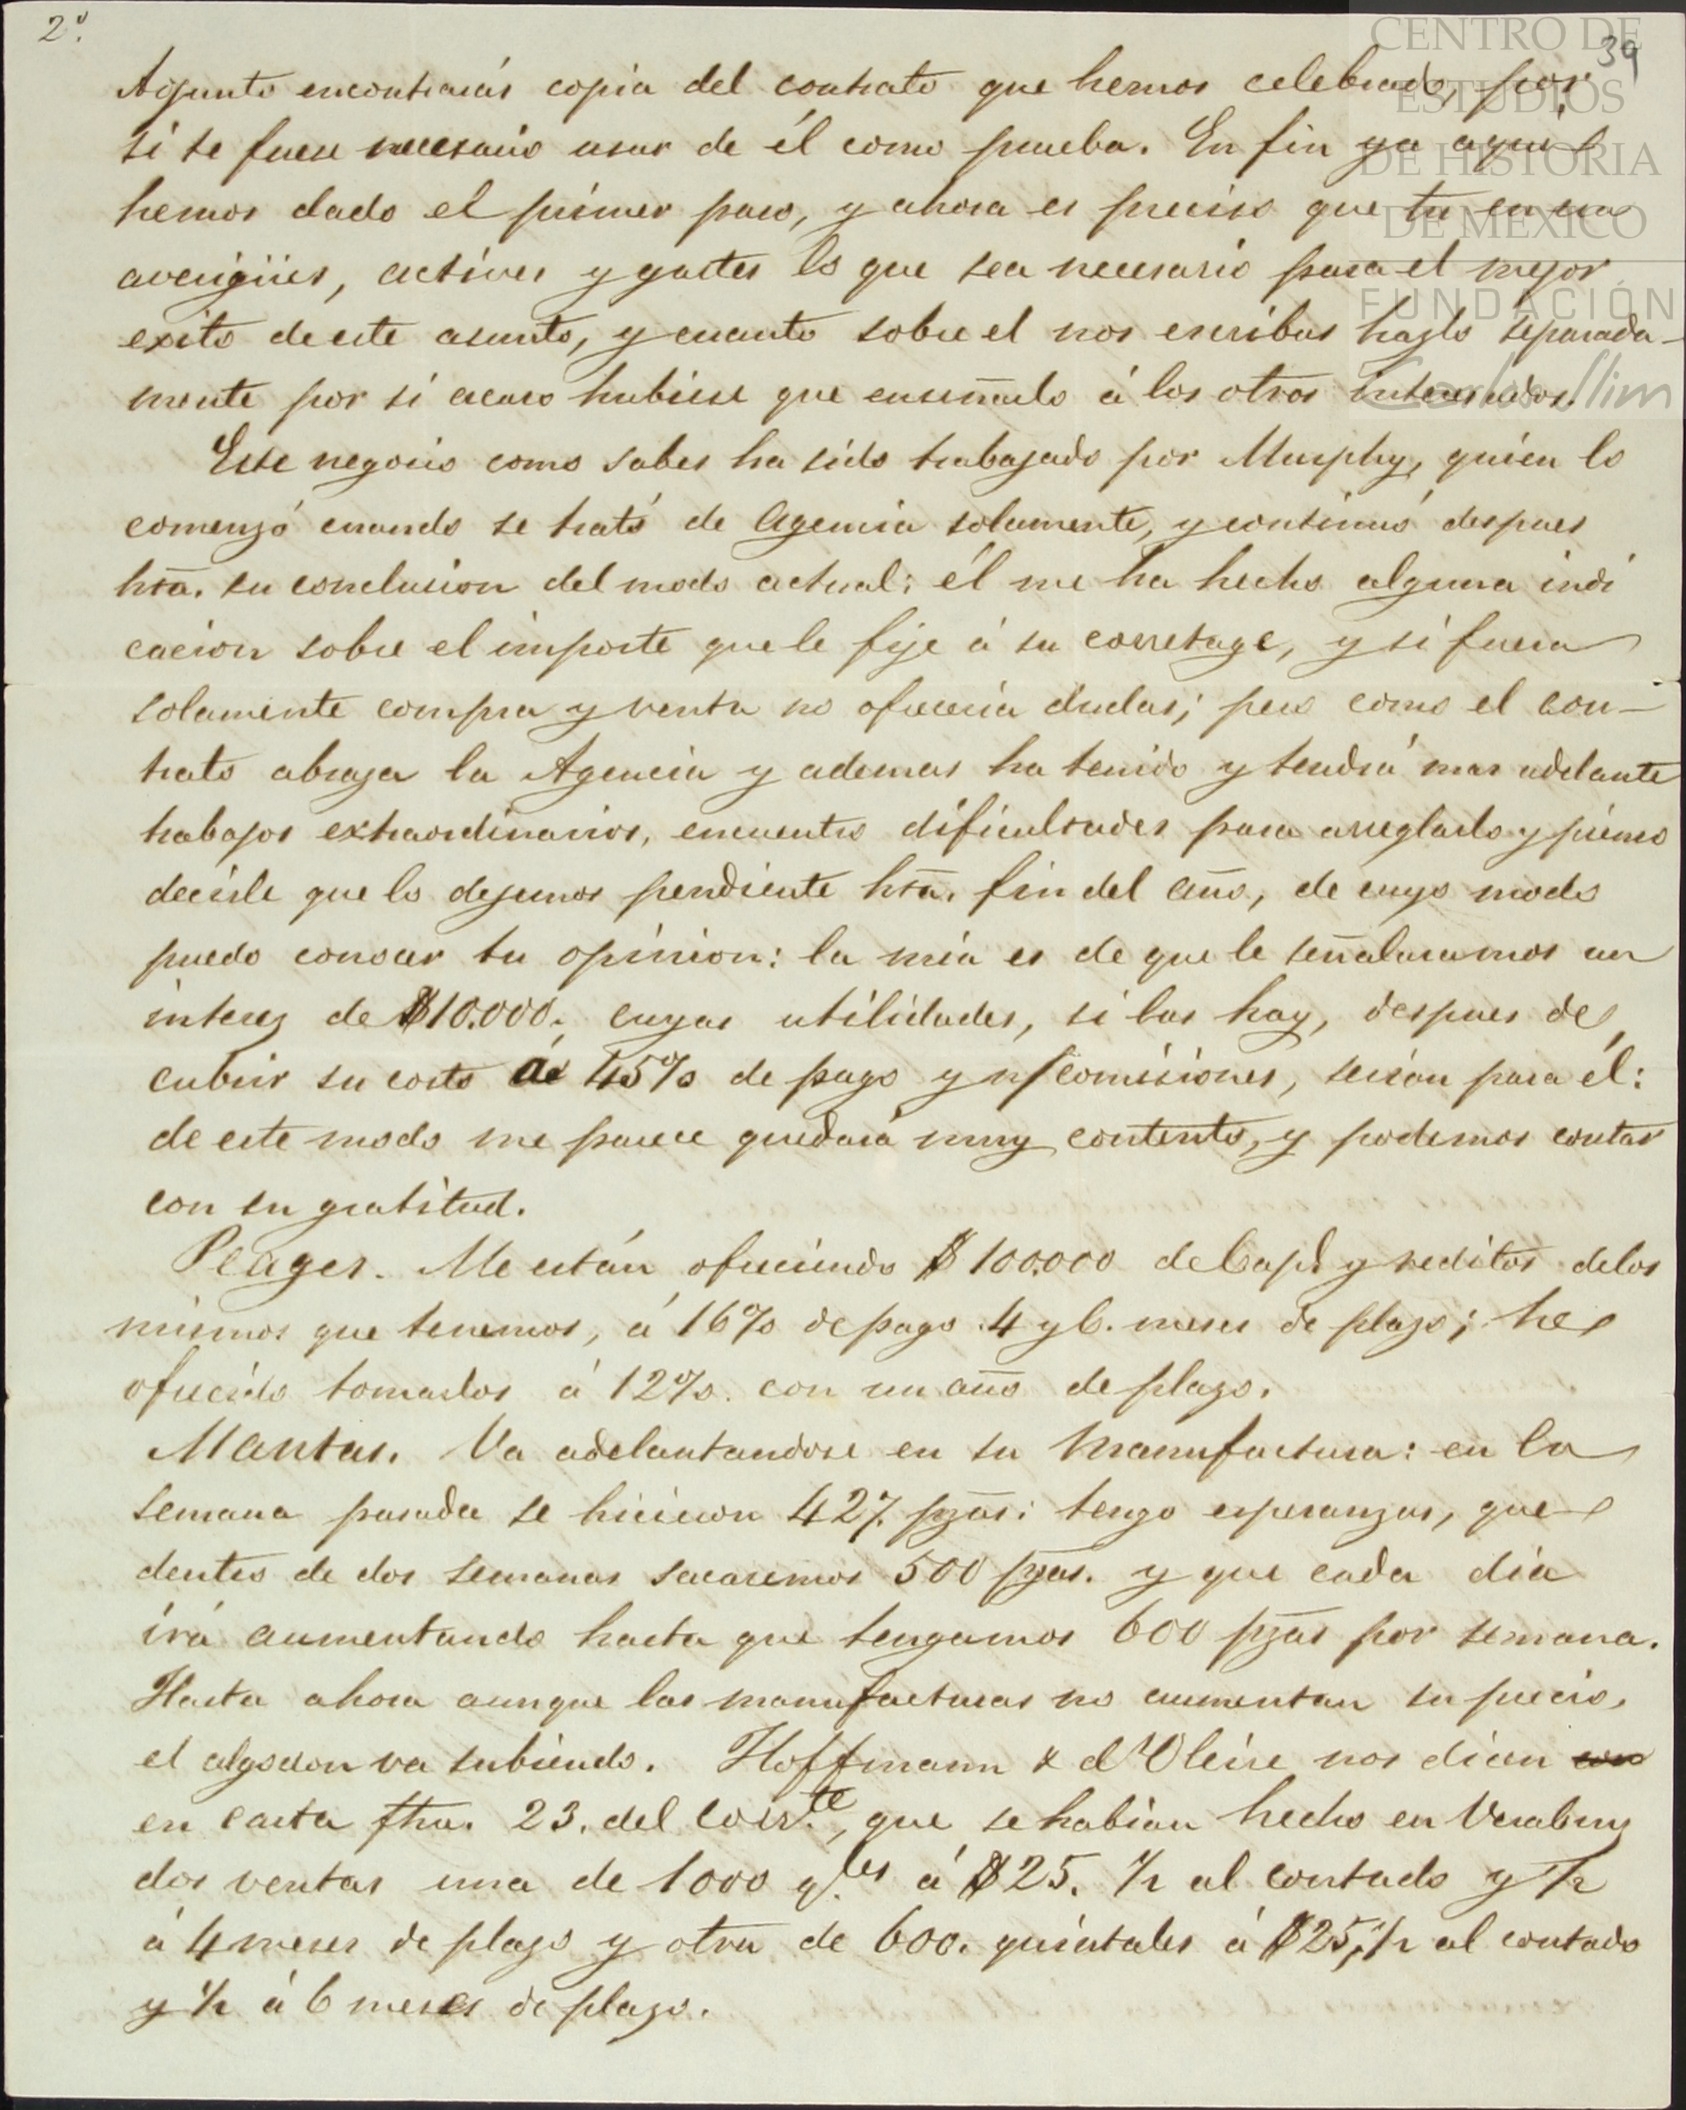 2º.
39
CENTRO DE
ESTUDIOS
DE HISTORIA
DE MEXICO
FUNDACIÓN
Carlos Slim
Adjunto encontrarás copia del contrato que hemos celebrado, por
si te fuese necesario usar de él como prueba. En fin ya aqui
hemos dado el primer paso, y ahora es preciso que tu en esa
averigües, actives y gastes lo que sea necesario para el mejor
exito de este asunto, y cuanto sobre el nos escribas hazlo separada-
mente por si acaso hubiese que enseñarlo á los otros interesados.
Este negocio como sabes ha sido trabajado por Murphy, quien lo
comenzó cuando se trató de Agencia solamente, y continuó despues
htã. su conclusion del modo actual: él me ha hecho alguna indi
cacion sobre el importe que le fije á su corretage, y si fuera
solamente compra y venta no ofreceria dudas; pero como el con-
trato abraza la Agencia y ademas ha tenido y tendrá mas adelante
trabajos extraordinarios, encuentro dificultades para arreglarlo y pienso
decirle que lo dejemos pendiente htã. fin del año, de cuyo modo
puedo conocer tu opinion: la mia es de que le señalaramos un
interes de $10.000. cuyas utilidades, si las hay, despues de
cubrir su costo á 45% de pago y n/comisiones, serian para él:
de este modo me parece quedará muy contento, y podemos contar
con su gratitud.
Peages. Me están ofreciendo $100.000 de Capl. y reditos de los
mismos que tenemos, á 16% de pago 4 y 6. meses de plazo; he
ofrecido tomarlos á 12%. con un año de plazo.
Mantas. Va adelantandose en su manufactura: en la
semana pasada se hicieron 427. pzãs: tengo esperanzas, que
dentro de dos semanas sacaremos 500 pzas. y que cada dia
irá aumentando hasta que tengamos 600 pzãs por semana.
Hasta ahora aunque las manufacturas no aumentan su precio,
el algodon va subiendo. Hoffmann & d'Oleire nos dicen
en carta fha. 23. del corr.te, que se habian hecho en Veracruz
dos ventas una de 1000 q.les á $25. ½ al contado y ½
á 4 meses de plazo y otra de 600. quintales á $25, ½ al contado
y ½ á 6 meses de plazo.